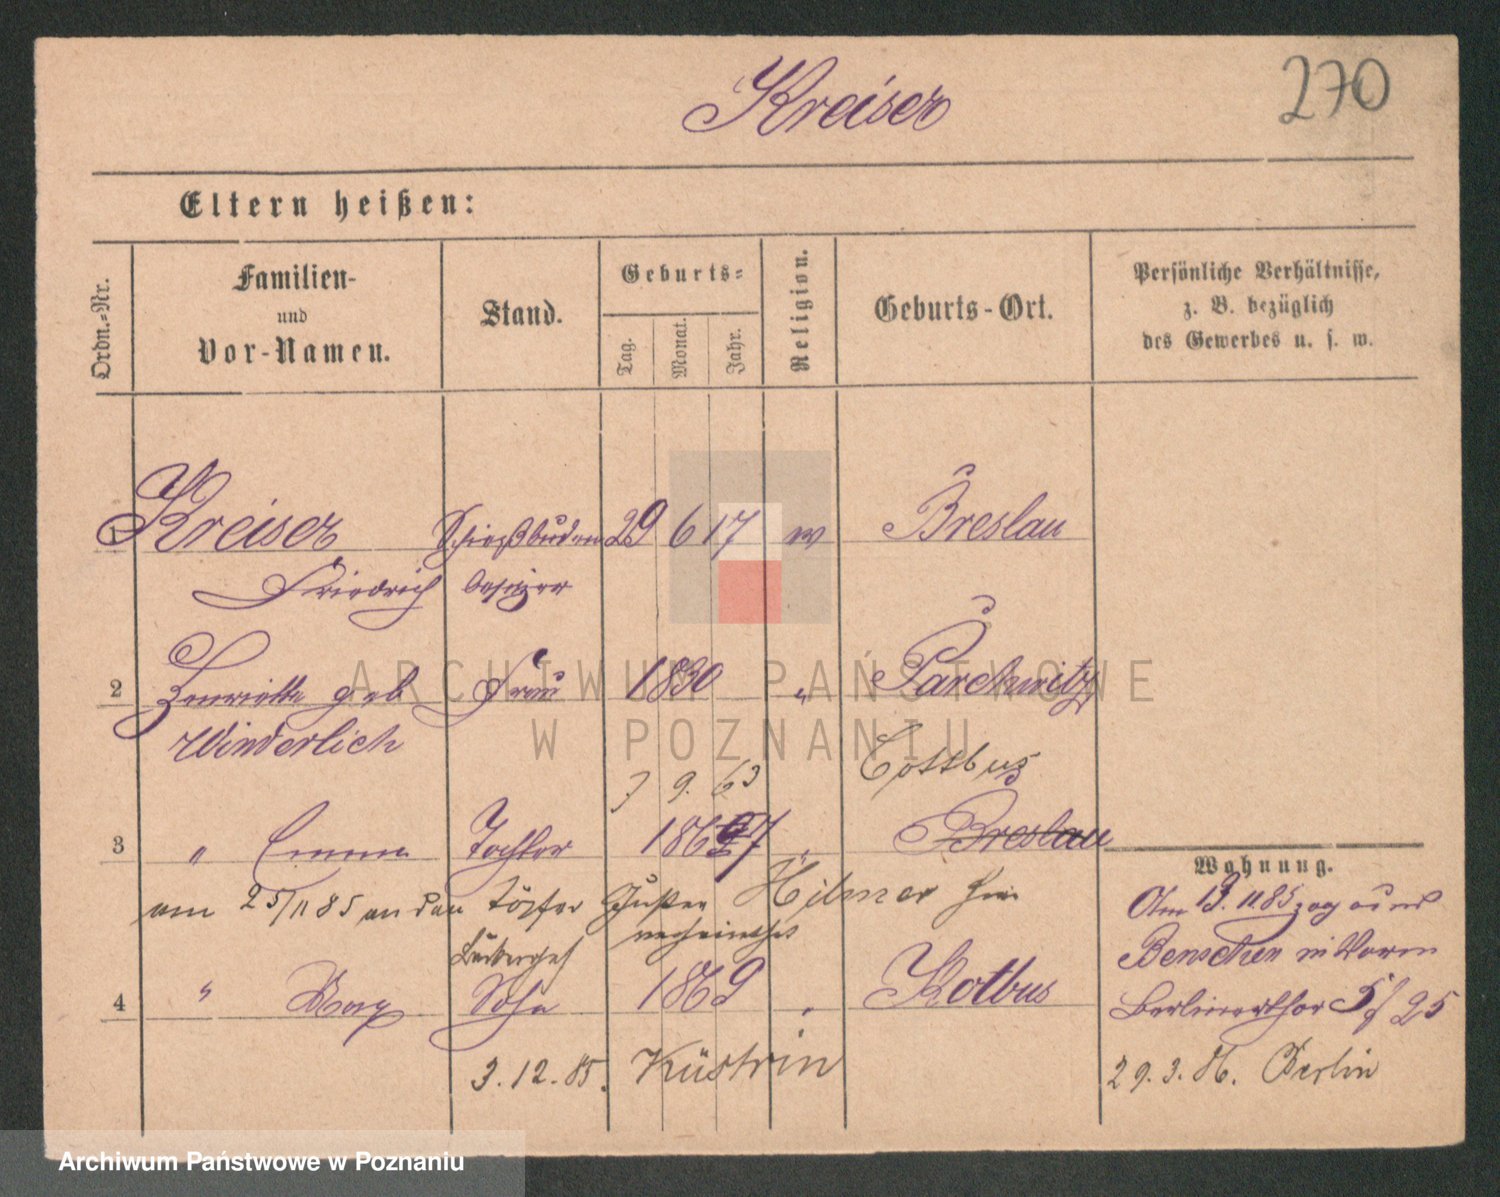 270
Kreiser
Eltern heißen:
Ordn.=Nr.
Familien-
und
Vor-Namen.
Stand.
Geburts=
Tag.
Monat.
Jahr.
Religion.
Geburts-Ort.
Persönliche Verhältnisse,
z. B. bezüglich
des Gewerbes u. s. w.
1 Kreiser Schießbuden 29 6 17 Breslau
Friedrich besitzer
2 Henriette geb Frau 1830 " Parchwitz
Winderlich
9. 63 Cottbus
3 " Emma Tochter 1867 " Breslau
Wohnung.
am 25/11 85 an den Töpfer Gustav Hilmer hier
verheirathet
Am 13. 11 85 zog aus
Bentschen in Vorm
4 " Max Sohn 1869 " Kotbus
Berlinerthor 5/25
3.12.85. Küstrin
29.3.86. Berlin
ARCHIWUM PAŃSTWOWE
W POZNANIU
Archiwum Państwowe w Poznaniu